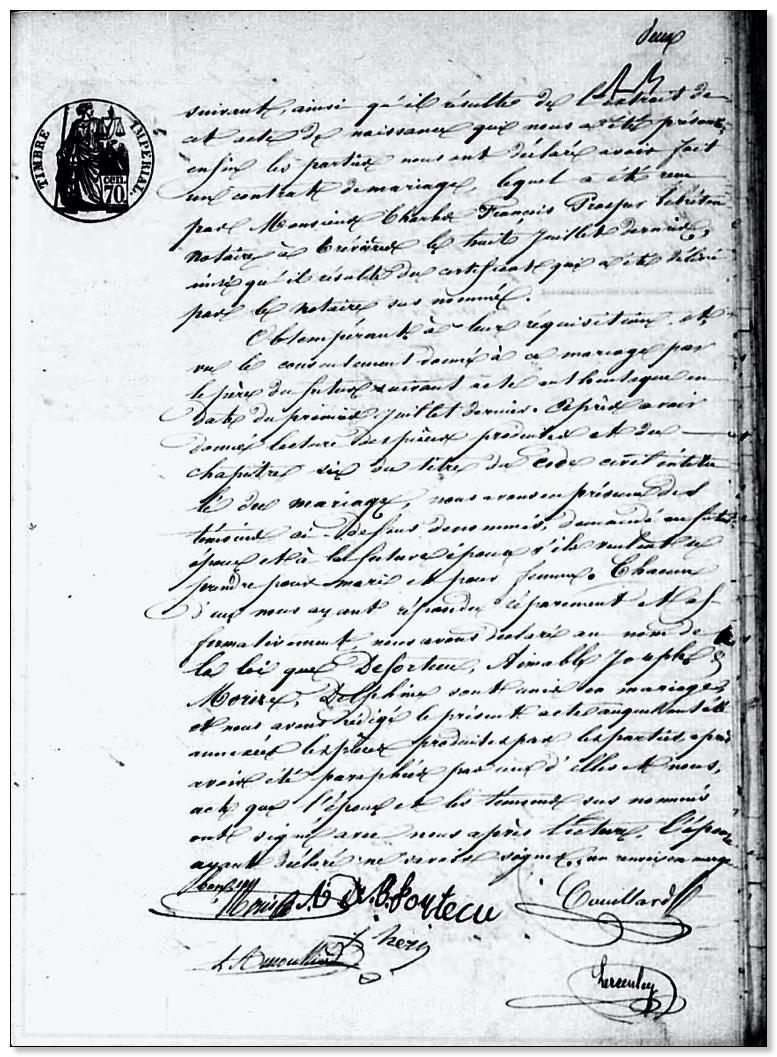 deux
TIMBRE IMPÉRIAL.
CEN.
70
suivant, ainsi qu'il résulte de l'extrait de
cet acte de naissance qui nous a été présenté,
enfin les parties nous ont déclaré avoir fait
un contrat de mariage, lequel a été reçu
par Monsieur Charles François Prosper
notaire à Trévières le huit Juillet dernier,
ainsi qu'il résulte du certificat qui a été délivré
par le notaire sus nommé.
Obtempérant à leur réquisition, et
vu le consentement donné à ce mariage par
le père du futur suivant acte authentique en
date du premier Juillet dernier. Après avoir
donné lecture des pièces produites et du
chapitre six du titre du Code civil intitu
lé du mariage, nous avons en présence des
témoins ci-dessous dénommés, demandé au futur
époux et à la future épouse s'ils veulent se
prendre pour mari et pour femme. Chacun
d'eux nous ayant répondu séparément et af-
firmativement nous avons déclaré au nom de
la loi que Desortecu, Aimable Joseph &
Morice, Delphine sont unis en mariage,
et nous avons rédigé le présent acte auquel ont été
annexées les pièces produites par les parties après
avoir été paraphées par ceux d'elles et nous,
acte que l'époux et les témoins sus nommés
ont signé avec nous après lecture, l'épouse
ayant déclaré ne savoir signer, un renvoi en marge
Couillard